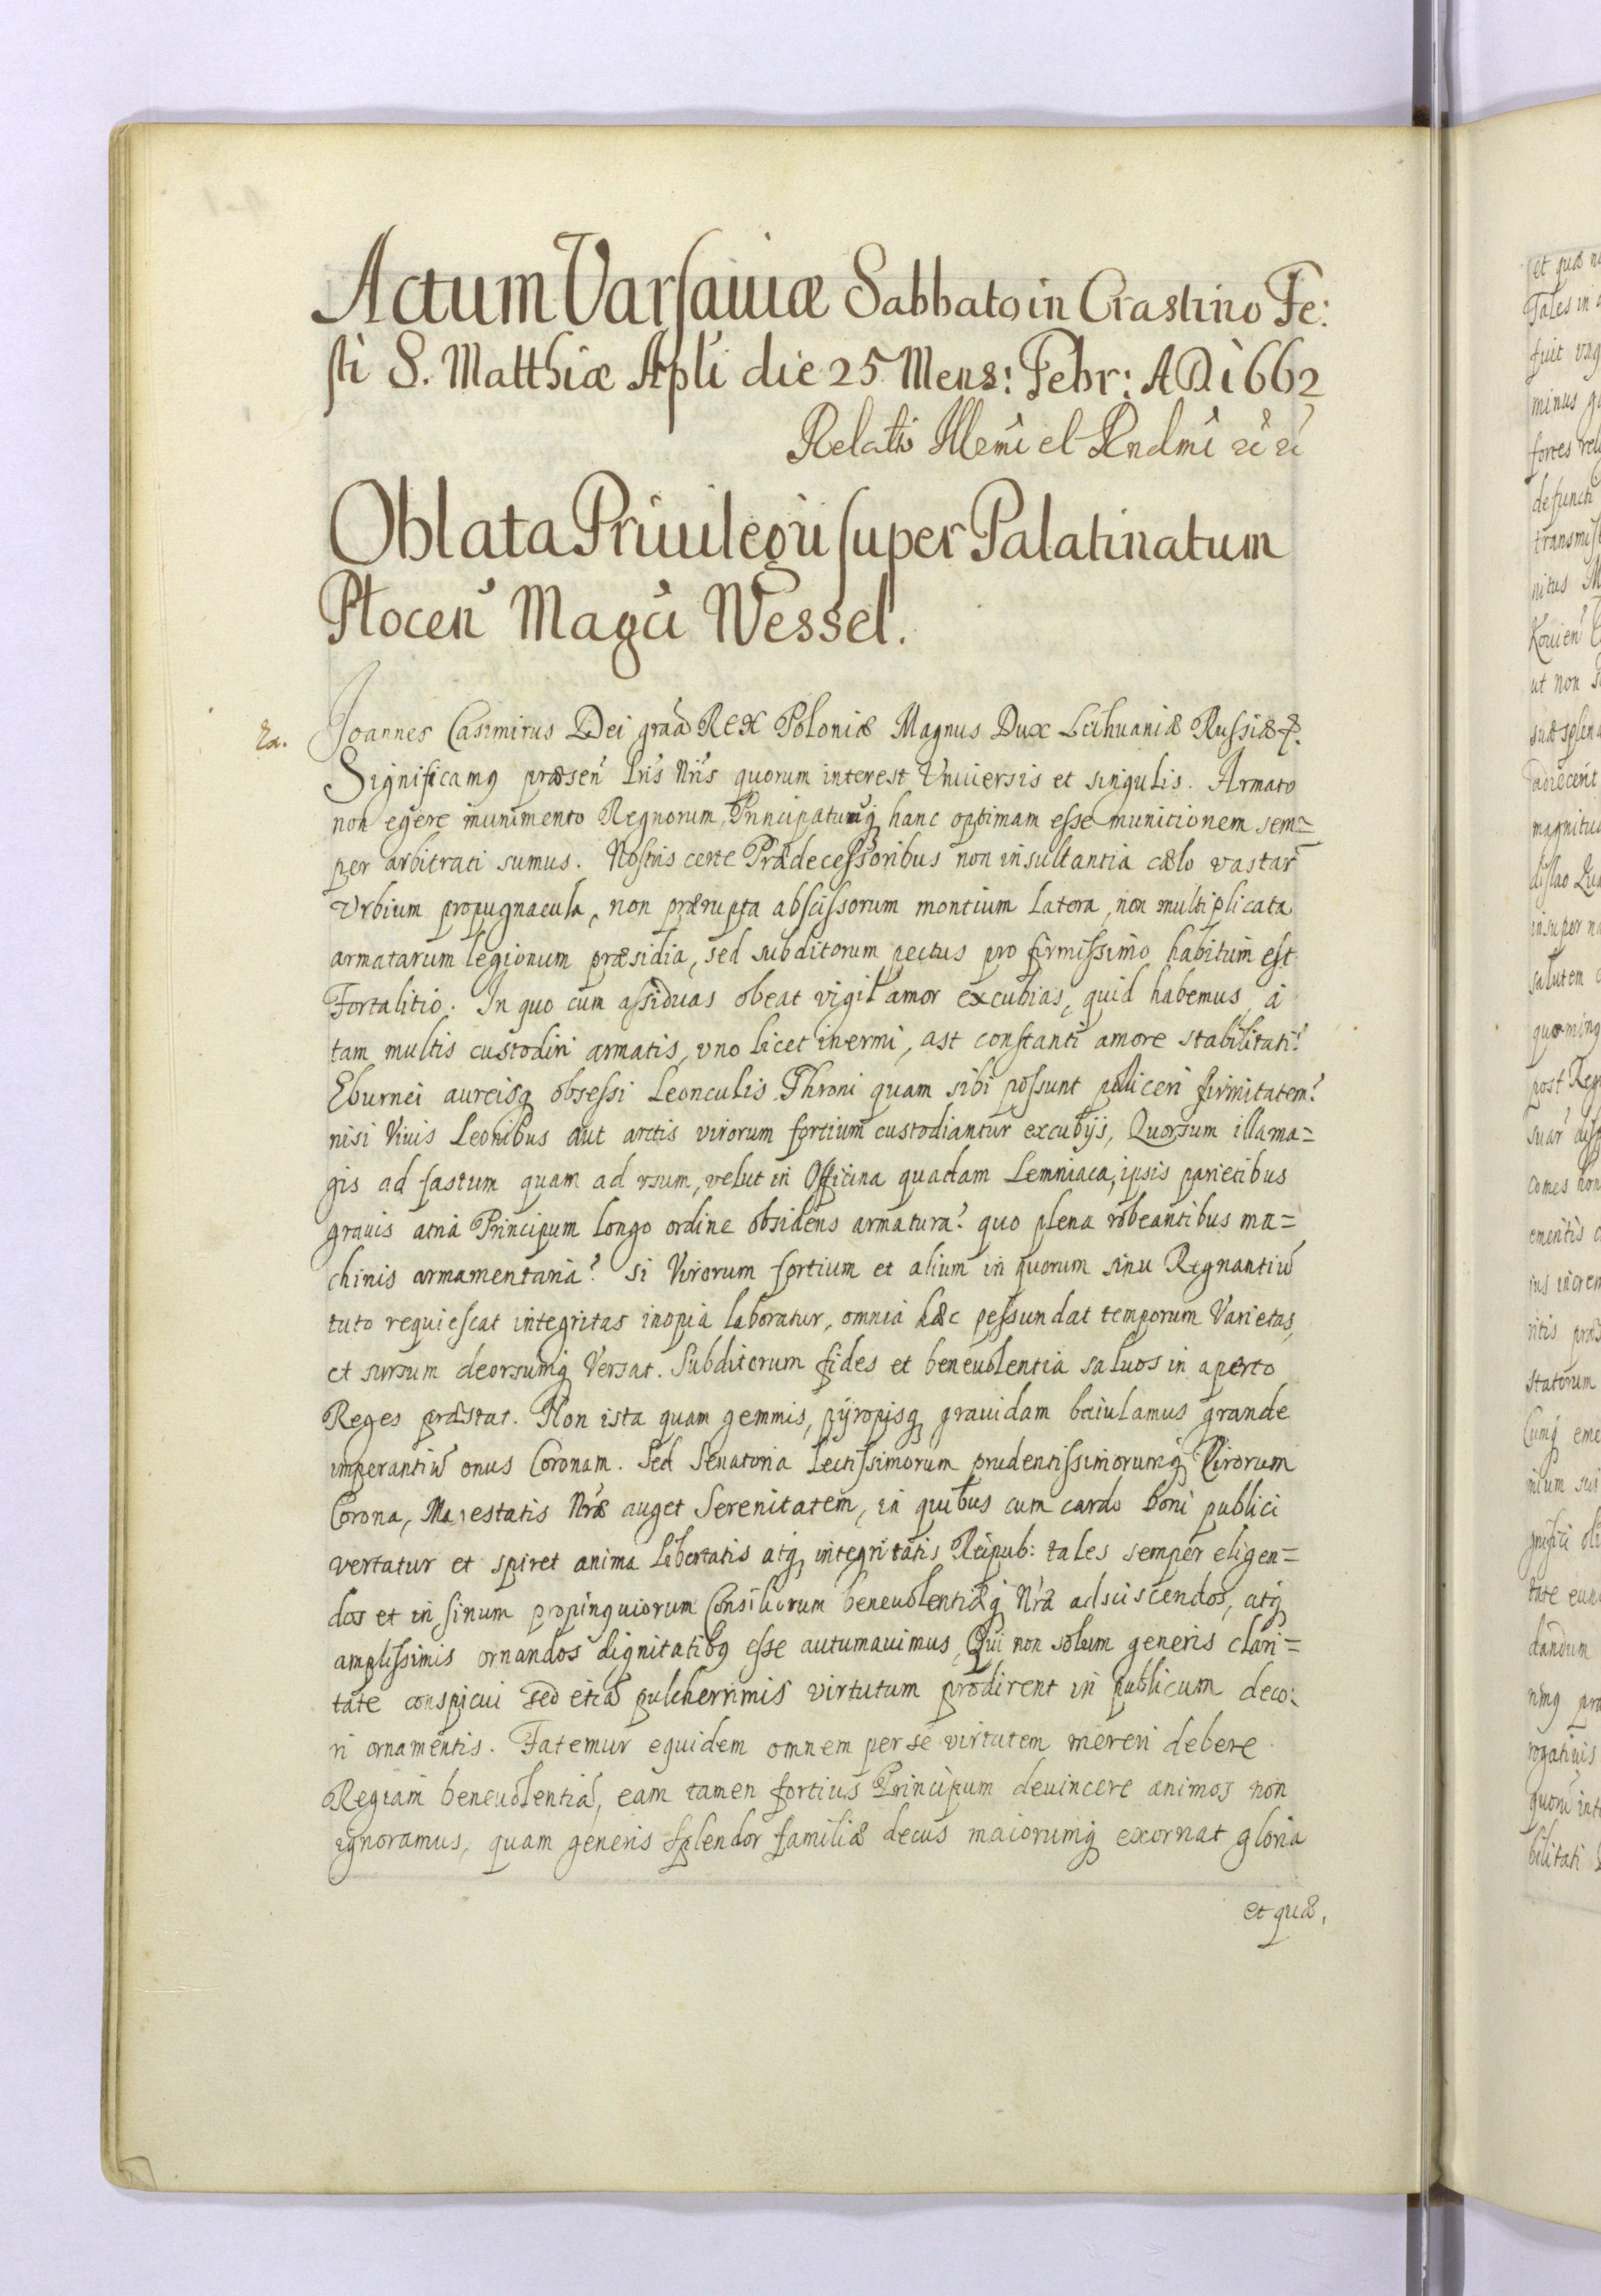 Actum Varsaviæ Sabbato in Crastino Fe:
sti S. Matthiæ Apli die 25 Mens: Febr: AD 1662
Relatio Illrmi et Rndmi
Oblata Privilegii super Palatinatum
Plocen Magci Wessel.
Joannes Casimirus Dei graa Rex Poloniæ Magnus Dux Lithuaniæ Russiæ &.
Significamq præsen lris nris quorum interest Vniuersis et singulis. Armato
non egere munimento Regnorum, Principatumq hanc optimam esse municionem sem=
per arbitrati sumus. Nostris certe Prædecessoribus non insultantia cælo vastar
Vrbium propugnacula, non prærupta abscissorum montium latera, non multiplicata
armatarum legionum præsidia, sed subditorum pectus pro firmissimo habitum est
Fortalitio. In quo cum assiduas obeat vigil amor excubias, quid habemus, á
tam multis custodiri armatis, vno licet inermi, ast constanti amore stabilitati?
Eburnei aureisq obsessi Leonculis Throni quam sibi possunt polliceri firmitatem?
nisi Viuis Leonibus aut arctis virorum fortium custodiantur excubijs, Quorsum illa ma=
gis ad fastum quam ad vsum, velut in Officina quadam Lemniaca, ipsis parietibus
grauis atria Principum longo ordine obsidens armatura? quo plena robeantibus ma=
chinis armamentaria? si Virorum fortium et alium in quorum sinu Regnantiu
tuto requiescat integritas inopia laboratur, omnia hæc pessundat temporum Varietas,
et sursum deorsumq Versat. Subditorum fides et beneuolentia saluos in aperto
Reges præstat. Non ista quam gemmis, pyropisq grauidam baiulamus grande
imperantiu onus Coronam. Sed Senatoria Lectissimorum prudentissimorumq Virorum
Corona, Maiestatis Nræ auget Serenitatem, in quibus cum cardo boni publici
vertatur et spiret anima Libertatis atq integritatis Reipub: tales semper eligen=
dos et in sinum propinquiorum Consiliorum beneuolentiæq Nra adsciscendos, atq
amplissimis ornandos dignitatibq esse autumauimus, Qui non solum generis clari=
tate conspicui sed etia pulcherrimis virtutum prodirent in publicum deco:
ri ornamentis. Fatemur equidem omnem per se virtutem mereri debere
Regiam beneuolentia, eam tamen fortius Principum deuincere animos non
ignoramus, quam generis splendor familiæ decus maiorumq exornat gloria
et quæ,